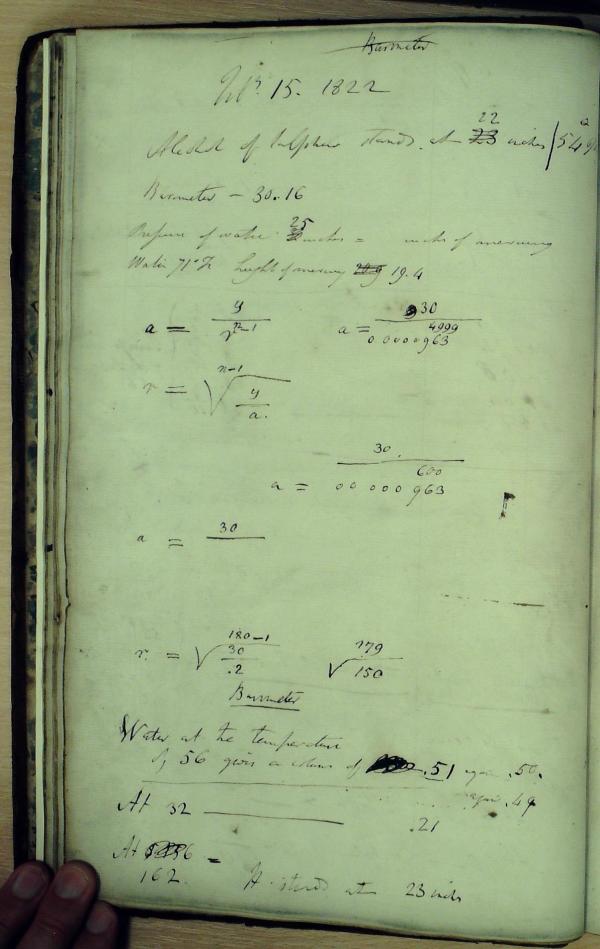 Barometer
15. 1822
22
Alcohol of Sulphur stands at 23 inches 54°
Barometer – 30.16
25
Pressure of water inches = inches of mercury
Water 71° height of mercury 19.4
a = y / r^n-1 a = 30 / 0.0000963^4999
r = n-1√ y / a.
a = 30 / 00 000 963^600
a = 30
r = 180-1√ 30 / .2 179√ 150
Barometer
Water at the temperature
of 56 gives a column of .51 again .50.
again .49
At 32 .21
At
162. It stood at 23 inches